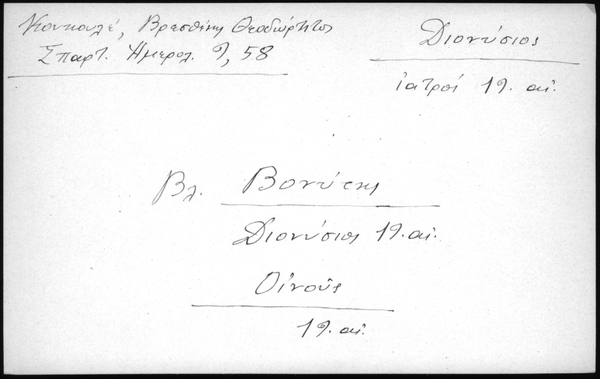 Βρεσθένης Θεοδώρητος
Σπαρτ. Ημερολ. 58
Διονύσιος
ἰατροί 19. αἰ.
Βλ.
Διονύσιος 19. αἰ.
Οἰνοῦς
19. αἰ.